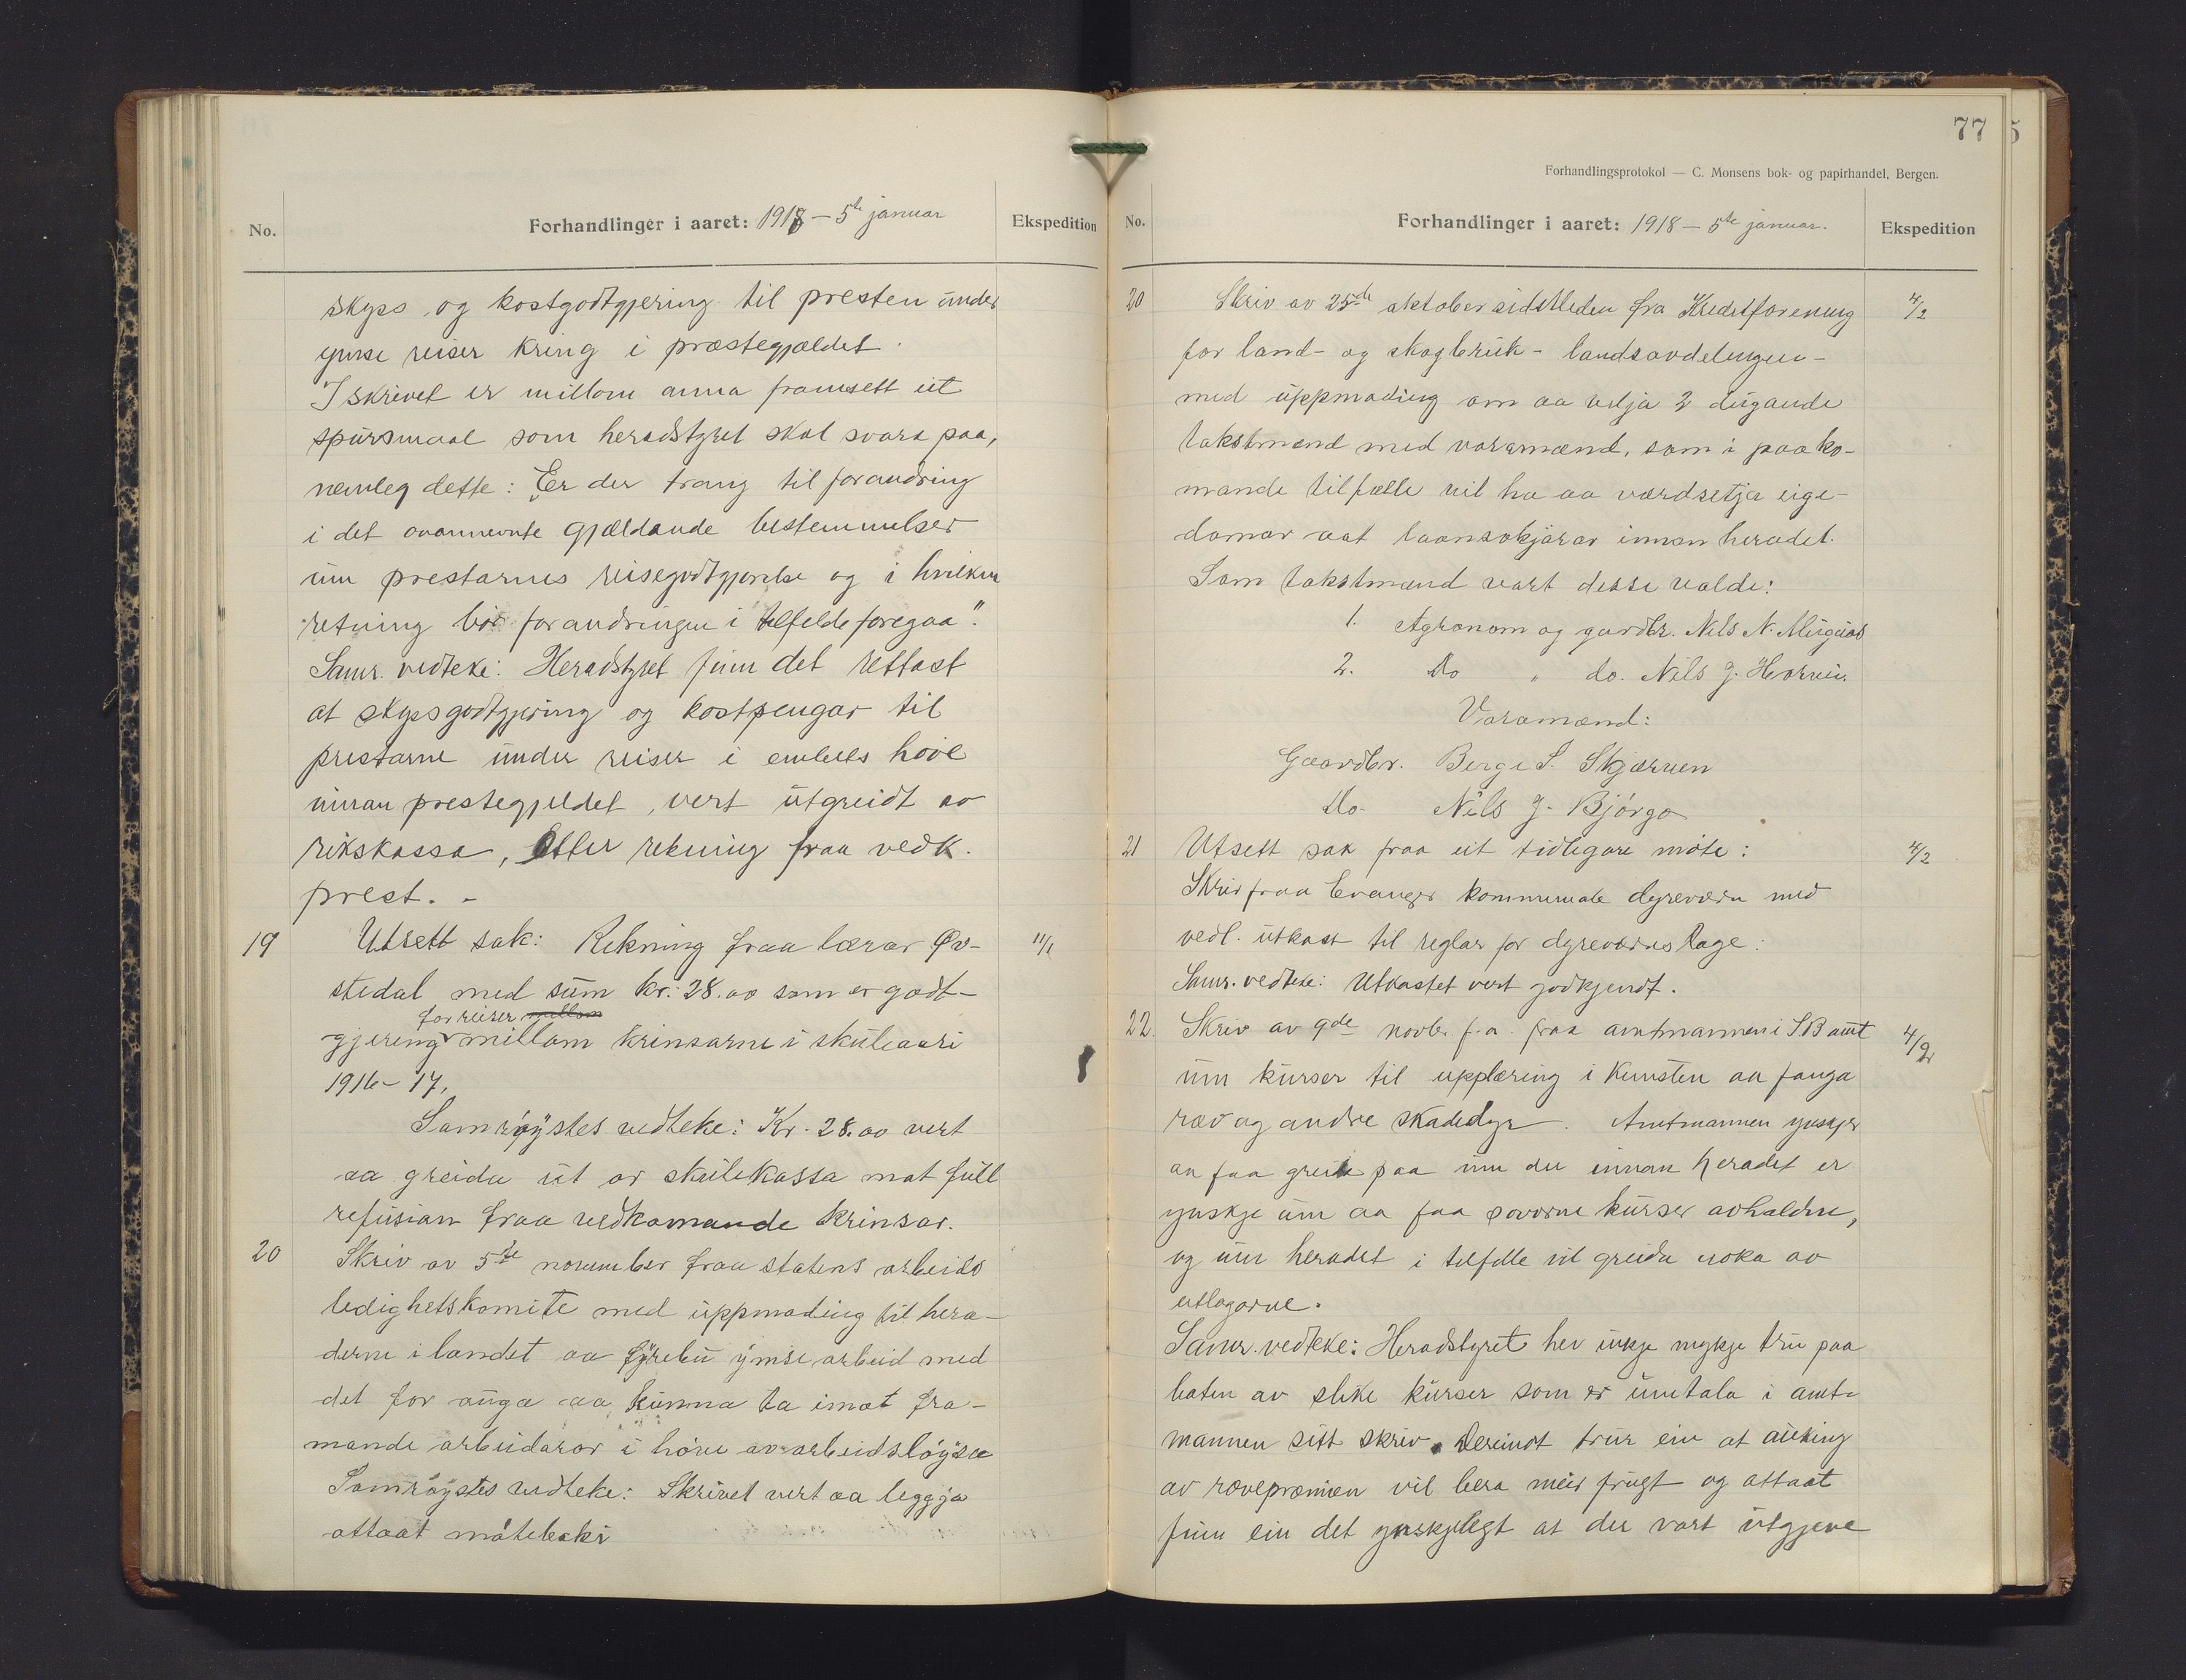 No.
Forhandlinger i aaret: 1918 – 5te januar
Ekspedition
skyss og kostgodtgjering til presten under
ymse reiser kring i præstegjældet.
I skrivet er millom anna framsett eit
spursmaal som heradstyret skal svara paa,
nemleg dette: "Er der trang til forandring
i det ovannevnte gjældande bestemmelser
um prestarnes reisegodtgjørelse og i hvilken
retning bør forandringen i tilfelde foregaa".
Samr. vedteke: Heradstyret finn det rettast
at skyssgodtgjering og kostpengar til
prestarne under reiser i embets høve
innan prestegjeldet, vert utgreidt av
rikskassa, etter rekning fraa vedk.
prest. -
19 Utsett sak: Rekning fraa lærar Øv- 11/1
stedal med sum kr. 28.00 som er godt-
for reiser millom
gjering millom krinsarne i skuleaari
1916-17.
Samrøystes vedteke: Kr. 28.00 vert
aa greida ut av skulekassa mot full
refusion fraa vedkomande krinsar.
20 Skriv av 5te november fraa statens arbeids
ledighetskomite med uppmoding til hera-
derne i landet aa fyrebu ymse arbeid med
det for auga aa kunna ta imot fra-
mande arbeidarar i høve av arbeidsløysa
Samrøystes vedteke: Skrivet vert aa leggja
attaat møteboki
77
5
Forhandlingsprotokol — C. Monsens bok- og papirhandel, Bergen.
No.
Forhandlinger i aaret: 1918 – 5te januar.
Ekspedition
20 Skriv av 25de oktober sidstleden fra Kreditforening 4/2
for land- og skogbruk - landsavdelingen -
med uppmoding om aa velja 2 dugande
takstmænd med varamænd, som i paako-
mande tilfælle vil ha aa værdsetja eige-
domar aat laansøkjarar innan heradet.
Som takstmænd vart desse valde:
1. Agronom og gardbr. Nils N. Mugaas
2. Do " do. Nils J. Horvei.
Varamænd:
Gaardbr. Berge S. Skjerven
Do. Nils J. Bjørgo
21 Utsett sak fraa eit tidlegare møte: 4/2
Skriv fraa Evanger kommunale dyreværn med
vedl. utkast til reglar for dyreværnslage:
Samr. vedteke: Utkastet vert godkjendt.
22. Skriv av 9de novbr. f.a. fraa amtmannen i S B amt 4/2
um kurser til upplæring i kunsten aa fanga
ræv og andre skadedyr. Amtmannen ynskjer
aa faa greide paa um der innan heradet er
ynskje um aa faa sovorne kurser avhaldne,
og um heradet i tilfelle vil greida noka av
utlagorne.
Samr. vedteke: Heradstyret hev inkje mykje tru paa
baten av slike kurser som er umtala i amt-
mannen sitt skriv. Derimot trur ein at auking
av rævepræmien vil bera meir frugt og attaat
finn ein det ynskjelegt at der vart utgjeve